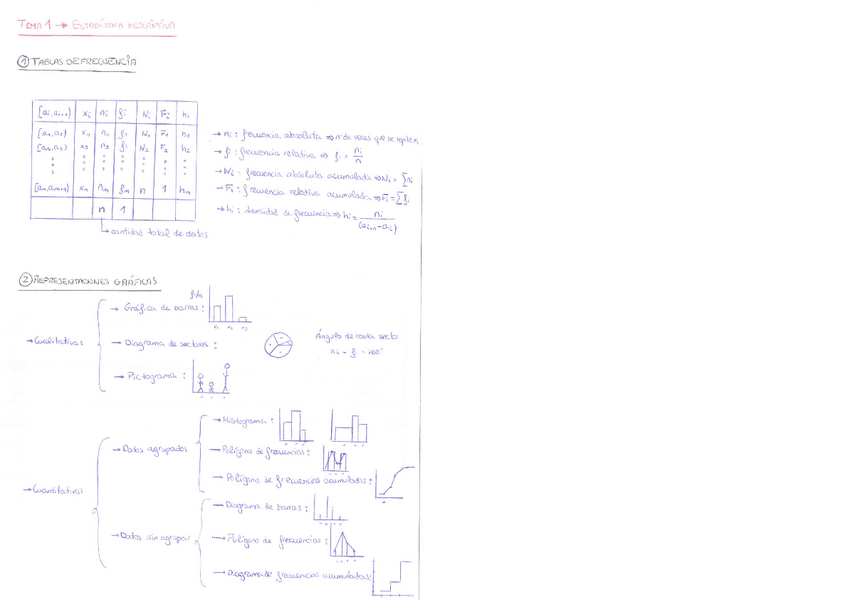 TEMA 1 → ESTADÍSTICA DESCRIPTIVA
① TABLAS DE FRECUENCIA
[ai, ai+1) xi ni fi Ni Fi hi
[a1, a2) x1 n1 f1 N1 F1 h1
[a2, a3) x2 n2 f2 N2 F2 h2
[am, am+1) xm nm fm n 1 hm
n 1
→ cantidad total de datos
→ ni : frecuencia absoluta ⇒ nº de veces que se repite xi
→ fi : frecuencia relativa ⇒ fi = ni/n
→ Ni : frecuencia absoluta acumulada ⇒ Ni = ∑ni
→ Fi : frecuencia relativa acumulada ⇒ Fi = ∑fi
→ hi : densidad de frecuencia ⇒ hi = ni/(ai+1 - ai)
② REPRESENTACIONES GRÁFICAS
→ Cualitativas
→ Gráfica de barras :
→ Diagrama de sectores :
Ángulo de cada sector
→ Pictograma :
→ Cuantitativas
→ Datos agrupados
→ Histograma :
→ Polígono de frecuencias :
→ Polígono de frecuencias acumuladas :
→ Datos sin agrupar
→ Diagrama de barras :
→ Polígono de frecuencias :
→ Diagrama de frecuencias acumuladas :